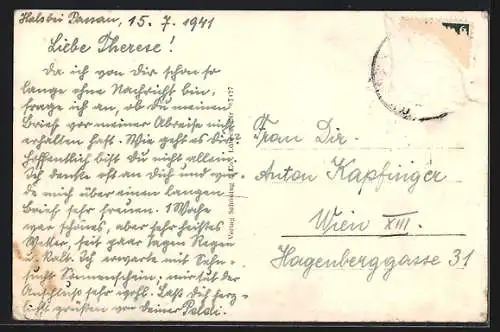 Hals bei Passau, 15. 7. 1941
Liebe Therese!
Da ich von dir schon so
lange ohne Nachricht bin,
frage ich an, ob du meinen
Brief vor meiner Abreise nicht
erhalten hast. Wie geht es dir?
Hoffentlich bist du nicht allein.
Ich denke oft an dich und wür-
de mich über einen langen
Brief sehr freuen. 1 Woche
war schönes, aber sehr heißes
Wetter, seit paar Tagen Regen
u. kalt. Ich erwarte mit Sehn-
sucht Sonnenschein; mir tut der
sehr wohl. Laß dich herz-
lichst grüßen von deiner Poldi.
Verlag
Frau Dir.
Anton Kapfinger
Wien XIII.
Hagenberggasse 31